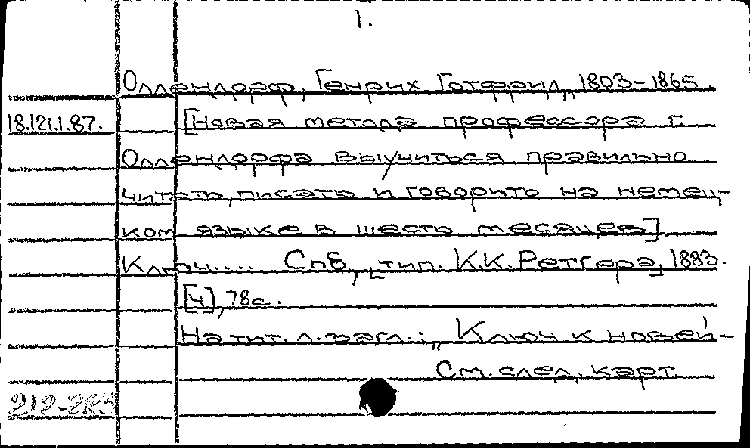 1.
Оллендорф, Генрих Готфрид, 1803-1865.
18.121.1.87. [Новая метода профессора Г.
Оллендорфа выучиться правильно
читать, писать и говорить на немец-
ком языке в шесть месяцев]
Ключ.... Спб., тип. К.К. Ретгера, 1883.
[4], 78с.
На тит. л. загл.: „Ключ к новей-
См. след. карт.